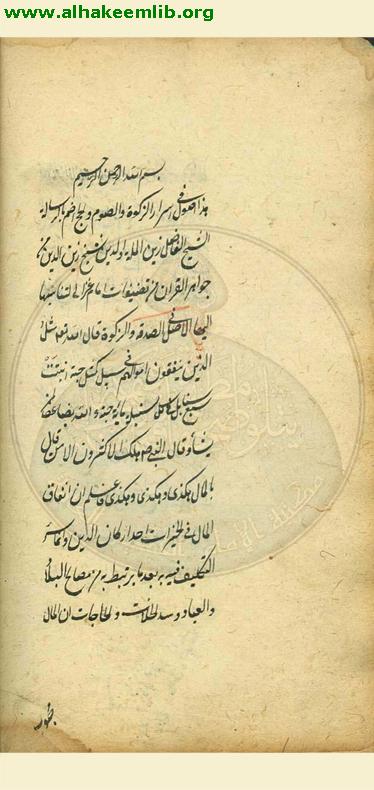 www.alhakeemlib.org
بسم الله الرحمن الرحيم
هذا فصول في اسرار الزكوة والصوم والحج اضم الرسالة
الشيخ الفاضل زين الملة والدين الشيخ زين الدين من
جواهر القران من تصنيفات امام غزالى لتناسبها
اليها الاصل في الصدقة والزكوة قال الله تعالى مثل
الذين ينفقون اموالهم في سبيل كمثل حبة انبتت
سبع سنابل في كل سنبلة ماية حبة والله يضاعف لمن
يشاء وقال النبى هلك الاكثرون الا من قال
بالمال هكذى وهكذى وهكذى فاعلم ان انفاق
المال في الخيرات احد اركان الدين
التكليف فيه بعد ما يرتبط به من مصالح البلاد
والعباد وسد الخلات والحاجات ان المال